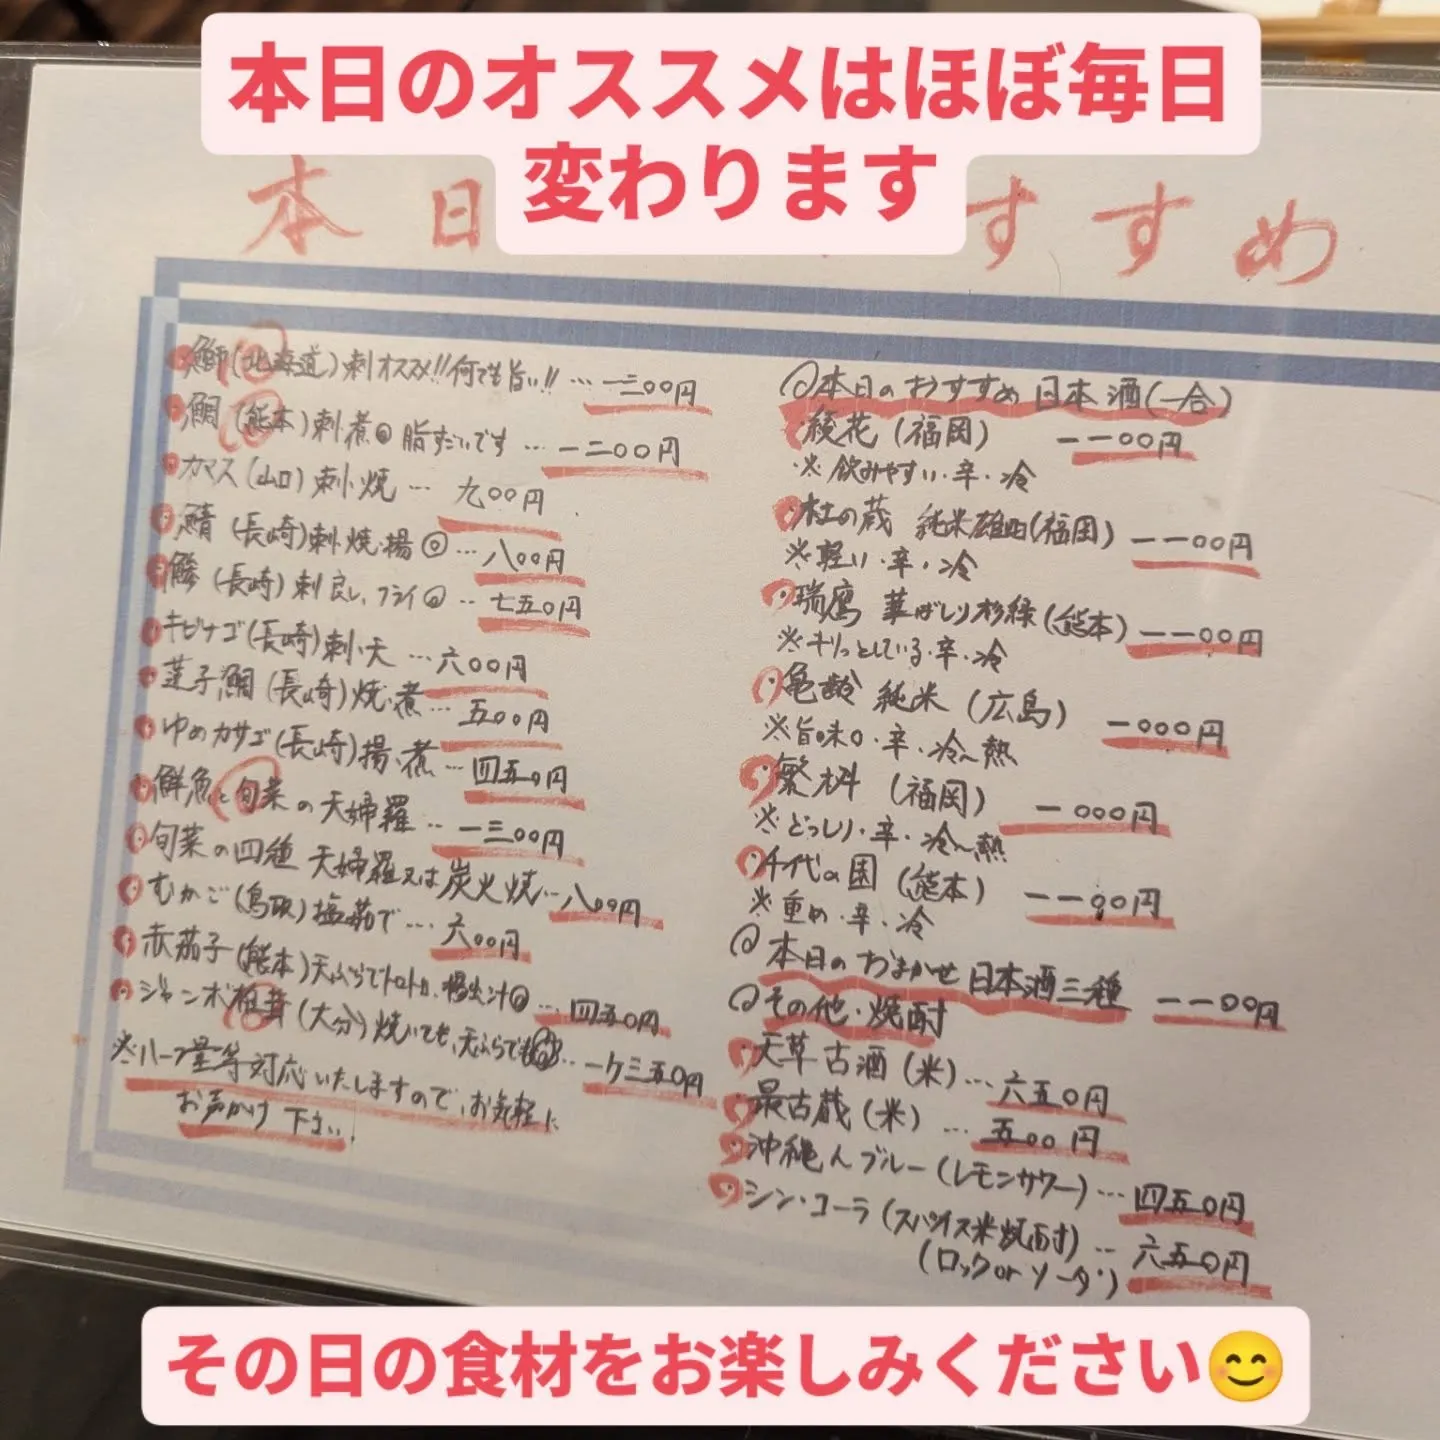 本日のオススメはほぼ毎日
変わります
本日 すすめ
・鰤(北海道)刺オススメ!!何でも旨い!! … 一三００円
・鯛(熊本)刺・煮◎ 脂すごいです … 一二００円
・カマス(山口)刺・焼 … 九００円
・鯖(長崎)刺・焼・揚◎ … 八００円
・鯵(長崎)刺良し、フライ◎ … 七五０円
・キビナゴ(長崎)刺・天 … 六００円
・蓮子鯛(長崎)焼・煮 … 五００円
・ゆめカサゴ(長崎)揚・煮 … 四五０円
・鮮魚と旬菜の天婦羅 … 一三００円
・旬菜の四種 天婦羅又は炭火焼 … 八００円
・むかご(鳥取)塩茹で … 六００円
・赤茄子(熊本)天ぷらでトロトロ、揚出汁◎ … 四五０円
・ジャンボ椎茸(大分)焼いても、天ぷらでも◎ … 一ケ三五０円
※ハーフ量等対応いたしますので、お気軽に
お声かけ下さい!
◎本日のおすすめ日本酒(一合)
・綾花(福岡) 一一００円
※飲みやすい・辛・冷
・杜の蔵 純米雄町(福岡) 一一００円
※軽い・辛・冷
・瑞鷹 華ばしり杉緑(熊本) 一一００円
※キリッとしている・辛・冷
・亀齢 純米(広島) 一０００円
※旨味◎・辛・冷〜熱
・繁桝(福岡) 一０００円
※どっしり・辛・冷〜熱
・千代の園(熊本) 一一００円
※重め・辛・冷
◎本日のおまかせ日本酒三種 一一００円
◎その他・焼酎
・天草古酒(米) … 六五０円
・最古蔵(米) … 五００円
・沖縄人ブルー(レモンサワー) … 四五０円
・シン・コーラ(スパイス米焼酎) … 六五０円
(ロックorソーダ)
その日の食材をお楽しみください😊